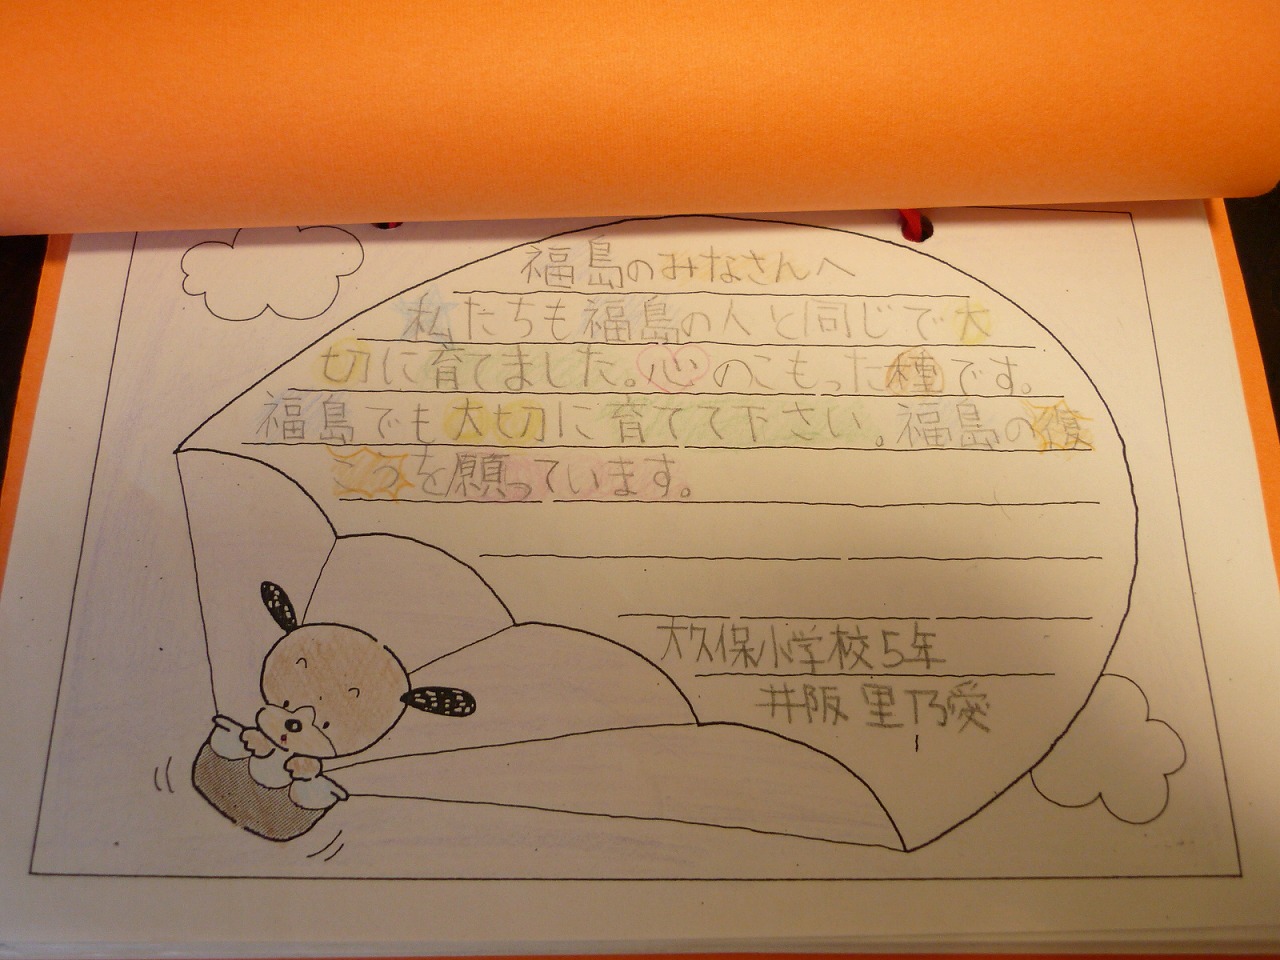 福島のみなさんへ
私たちも福島の人と同じで大
切に育てました。心のこもった種です。
福島でも大切に育てて下さい。福島の復
こうを願っています。
大久保小学校5年
井阪 里乃愛